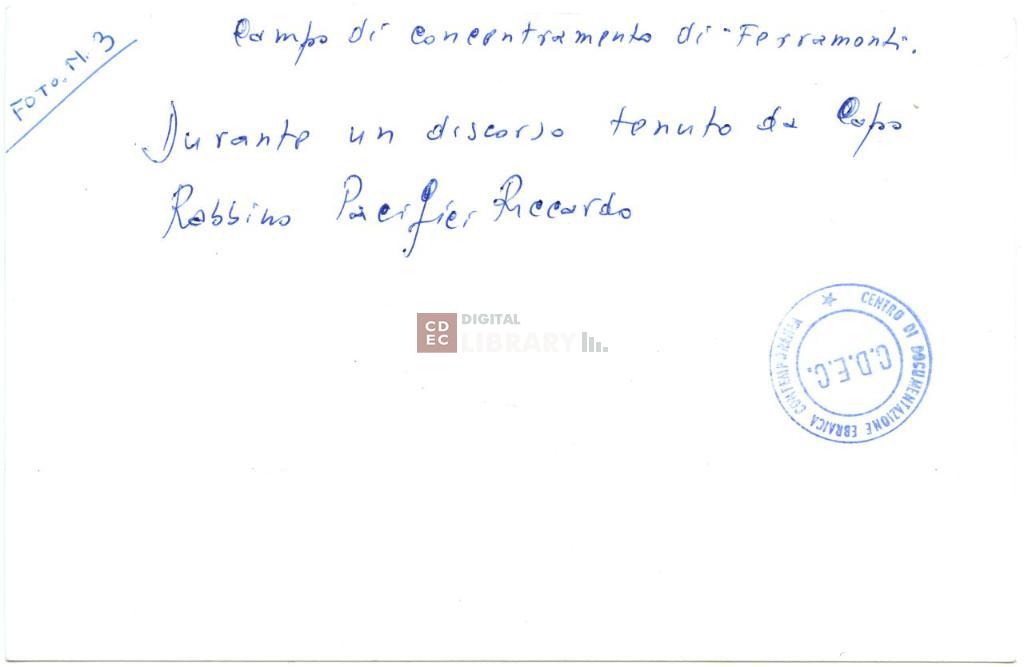 FOTO. N. 3
Campo di concentramento di "Ferramonti".
Durante un discorso tenuto da Capo
Rabbino Pacifici Riccardo
CD
EC
DIGITAL
LIBRARY
CENTRO DI DOCUMENTAZIONE EBRAICA CONTEMPORANEA
C.D.E.C.